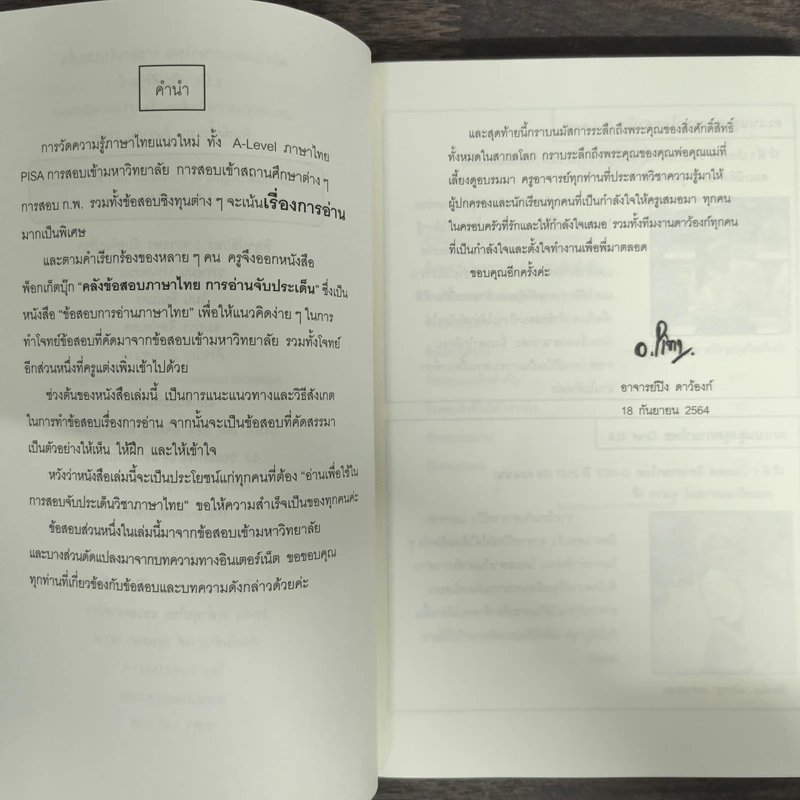 คำนำ
การวัดความรู้ภาษาไทยแนวใหม่ ทั้ง A-Level ภาษาไทย
PISA การสอบเข้ามหาวิทยาลัย การสอบเข้าสถานศึกษาต่าง ๆ
การสอบ ก.พ. รวมทั้งข้อสอบชิงทุนต่าง ๆ จะเน้นเรื่องการอ่าน
มากเป็นพิเศษ
และตามคำเรียกร้องของหลาย ๆ คน ครูจึงออกหนังสือ
พ็อกเก็ตบุ๊ก "คลังข้อสอบภาษาไทย การอ่านจับประเด็น" ซึ่งเป็น
หนังสือ "ข้อสอบการอ่านภาษาไทย" เพื่อให้แนวคิดง่าย ๆ ในการ
ทำโจทย์ข้อสอบที่คัดมาจากข้อสอบเข้ามหาวิทยาลัย รวมทั้งโจทย์
อีกส่วนหนึ่งที่ครูแต่งเพิ่มเข้าไปด้วย
ช่วงต้นของหนังสือเล่มนี้ เป็นการแนะแนวทางและวิธีสังเกต
ในการทำข้อสอบเรื่องการอ่าน จากนั้นจะเป็นข้อสอบที่คัดสรรมา
เป็นตัวอย่างให้เห็น ให้ฝึก และให้เข้าใจ
หวังว่าหนังสือเล่มนี้จะเป็นประโยชน์แก่ทุกคนที่ต้อง "อ่านเพื่อใช้ใน
การสอบจับประเด็นวิชาภาษาไทย" ขอให้ความสำเร็จเป็นของทุกคนค่ะ
ข้อสอบส่วนหนึ่งในเล่มนี้มาจากข้อสอบเข้ามหาวิทยาลัย
และบางส่วนดัดแปลงมาจากบทความทางอินเตอร์เน็ต ขอขอบคุณ
ทุกท่านที่เกี่ยวข้องกับข้อสอบและบทความดังกล่าวด้วยค่ะ
และสุดท้ายนี้กราบนมัสการระลึกถึงพระคุณของสิ่งศักดิ์สิทธิ์
ทั้งหมดในสากลโลก กราบระลึกถึงพระคุณของคุณพ่อคุณแม่ที่
เลี้ยงดูอบรมมา ครูอาจารย์ทุกท่านที่ประสาทวิชาความรู้มาให้
ผู้ปกครองและนักเรียนทุกคนที่เป็นกำลังใจให้ครูเสมอมา ทุกคน
ในครอบครัวที่รักและให้กำลังใจเสมอ รวมทั้งทีมงานดาว้องก์ทุกคน
ที่เป็นกำลังใจและตั้งใจทำงานเพื่อพี่มาตลอด
ขอบคุณอีกครั้งค่ะ
อาจารย์ปิง ดาว้องก์
18 กันยายน 2564